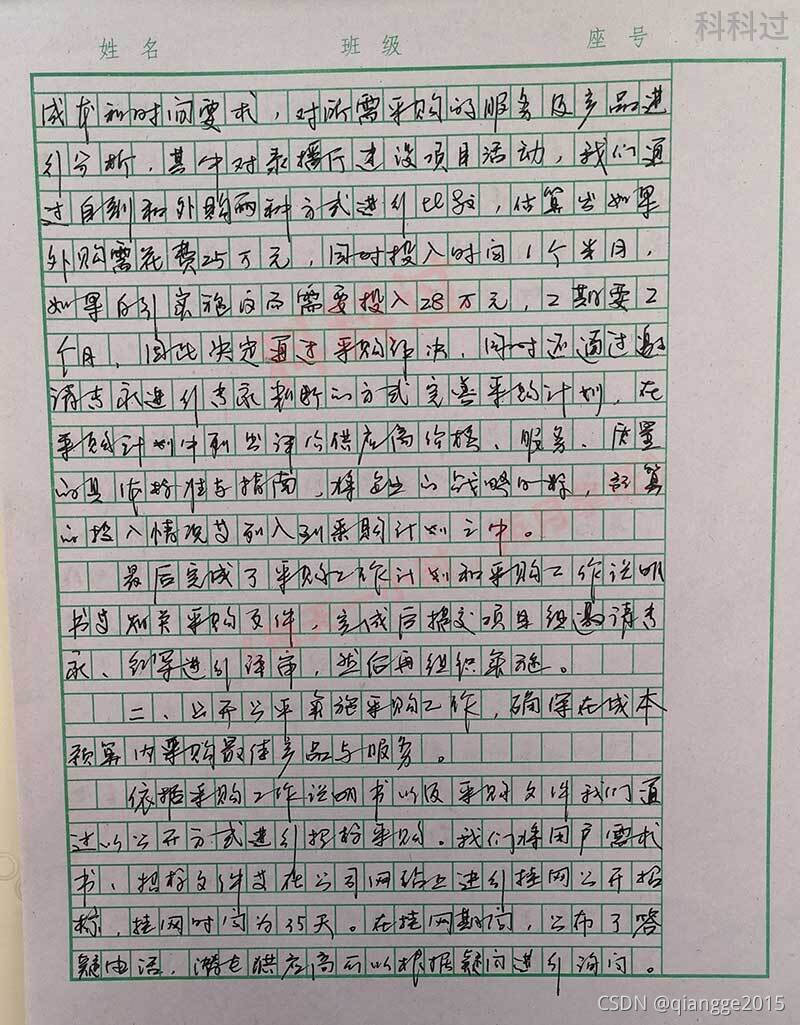 科科过
姓名 班级 座号
成本和时间要求，对所需采购的服务及产品进
行分析，其中对录播厅建设项目活动，我们通
过自制和外购两种方式进行比较，估算出如果
外购需花费25万元，同时投入时间1个半月，
如果自行实施反而需要投入28万元，工期要2
个月，因此决定通过采购解决，同时还通过邀
请专家进行专家判断的方式完善采购计划，在
采购计划中列出评价供应商价格、服务、质量
的具体标准与指南，将企业的战略目标，预算
的投入情况等列入到采购计划之中。
最后完成了采购工作计划和采购工作说明
书等相关采购文件，完成后提交项目组邀请专
家、领导进行评审，然后再组织实施。
二、公开公平实施采购工作，确保在成本
预算内采购最佳产品与服务。
依据采购工作说明书以及采购文件我们通
过以公开方式进行招标采购。我们将用户需求
书、招标文件等在公司网站上进行挂网公开招
标，挂网时间为35天。在挂网期间，公布了答
疑电话，潜在供应商可以根据疑问进行询问。
CSDN @qiangge2015